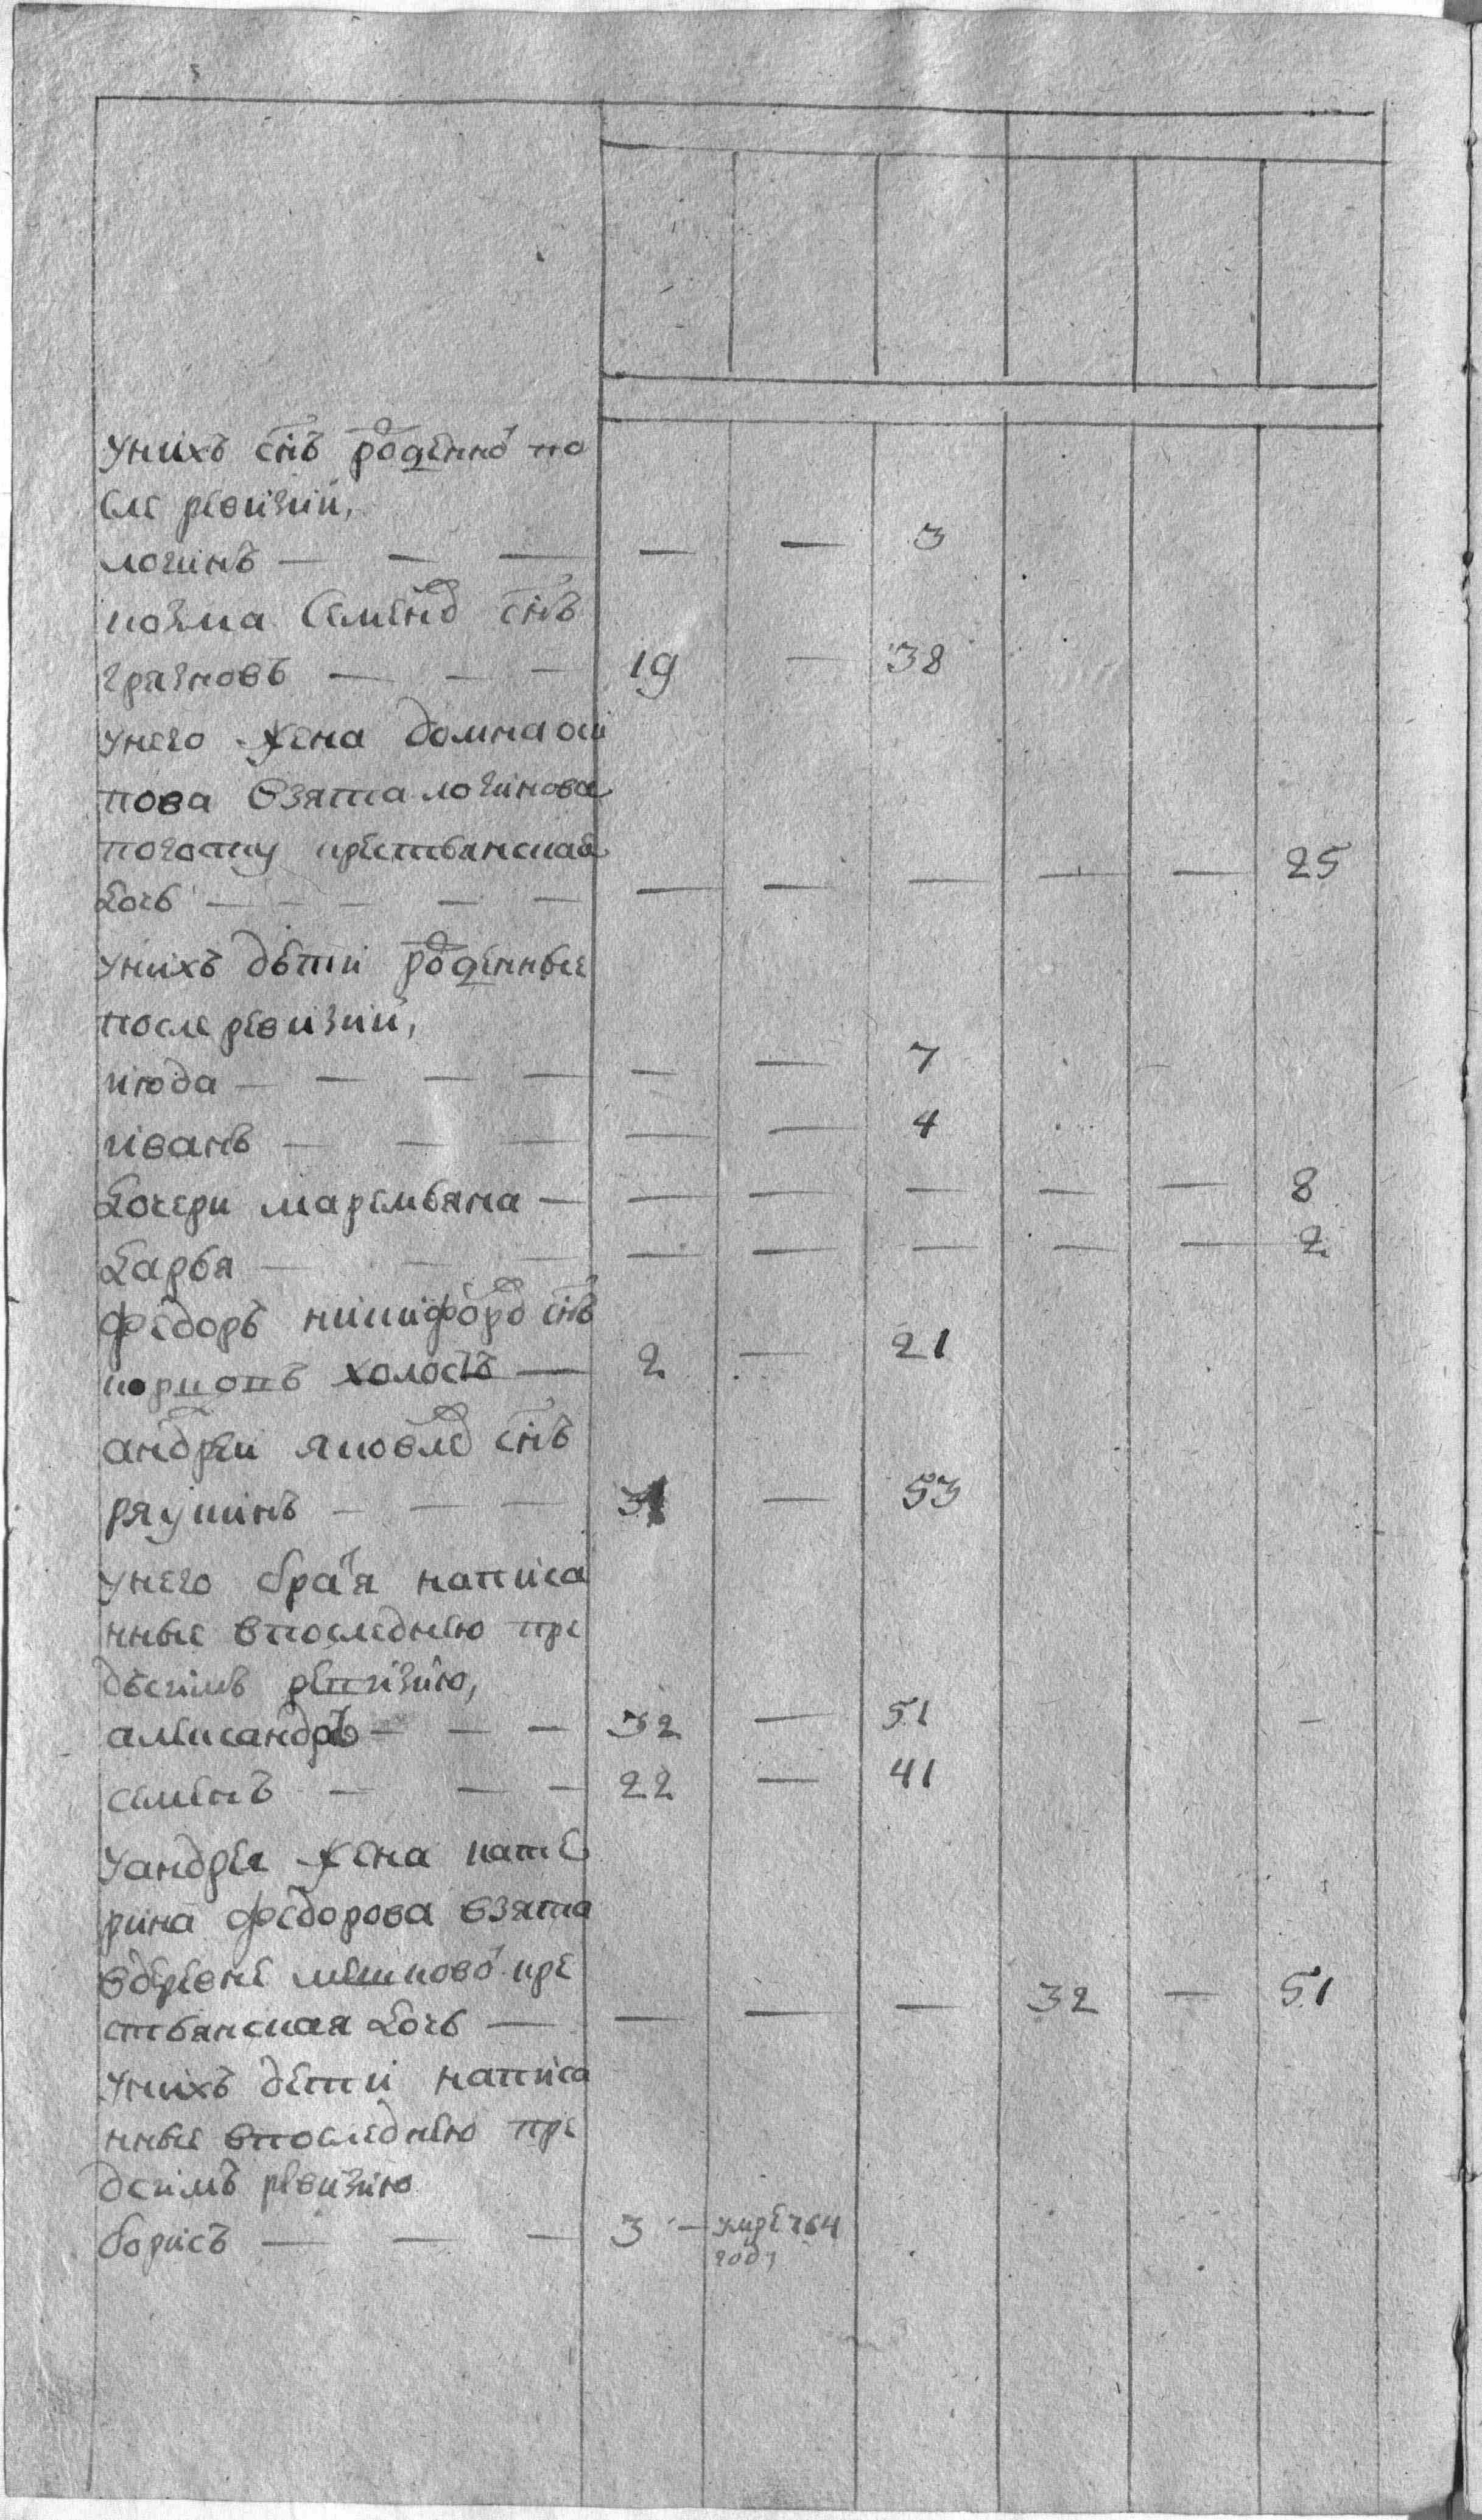 унихъ снъ роденно по
сле ревизии,
логинъ — — — — — 3
козма семено снъ
грязновъ — — — 19 — 38
унего жена домна оси
пова взята логинова
погосту крестьянская
дочь — — — — — — — — — — 25
унихъ дѣти роденные
после ревизии,
июда — — — — — — 7
иванъ — — — — — 4
дочери маремьяна — — — — — — 8
дарья — — — — — — — — 2
федоръ никифоро снъ
коркопъ холостъ — 2 — 21
андреи яковле снъ
ряукинъ — — — 31 — 53
унего братя написа
нные впоследнею пре
дъсимъ ревизию,
александръ — — — 32 — 51
семенъ — — — 22 — 41
уандрея жена кате
рина федорова взята
вдеревне мешково кре
стьянская дочь — — — — 32 — 51
унихъ дети написа
нные впоследнею пре
дсимъ ревизию
борисъ — — — 3 — умре 764
году